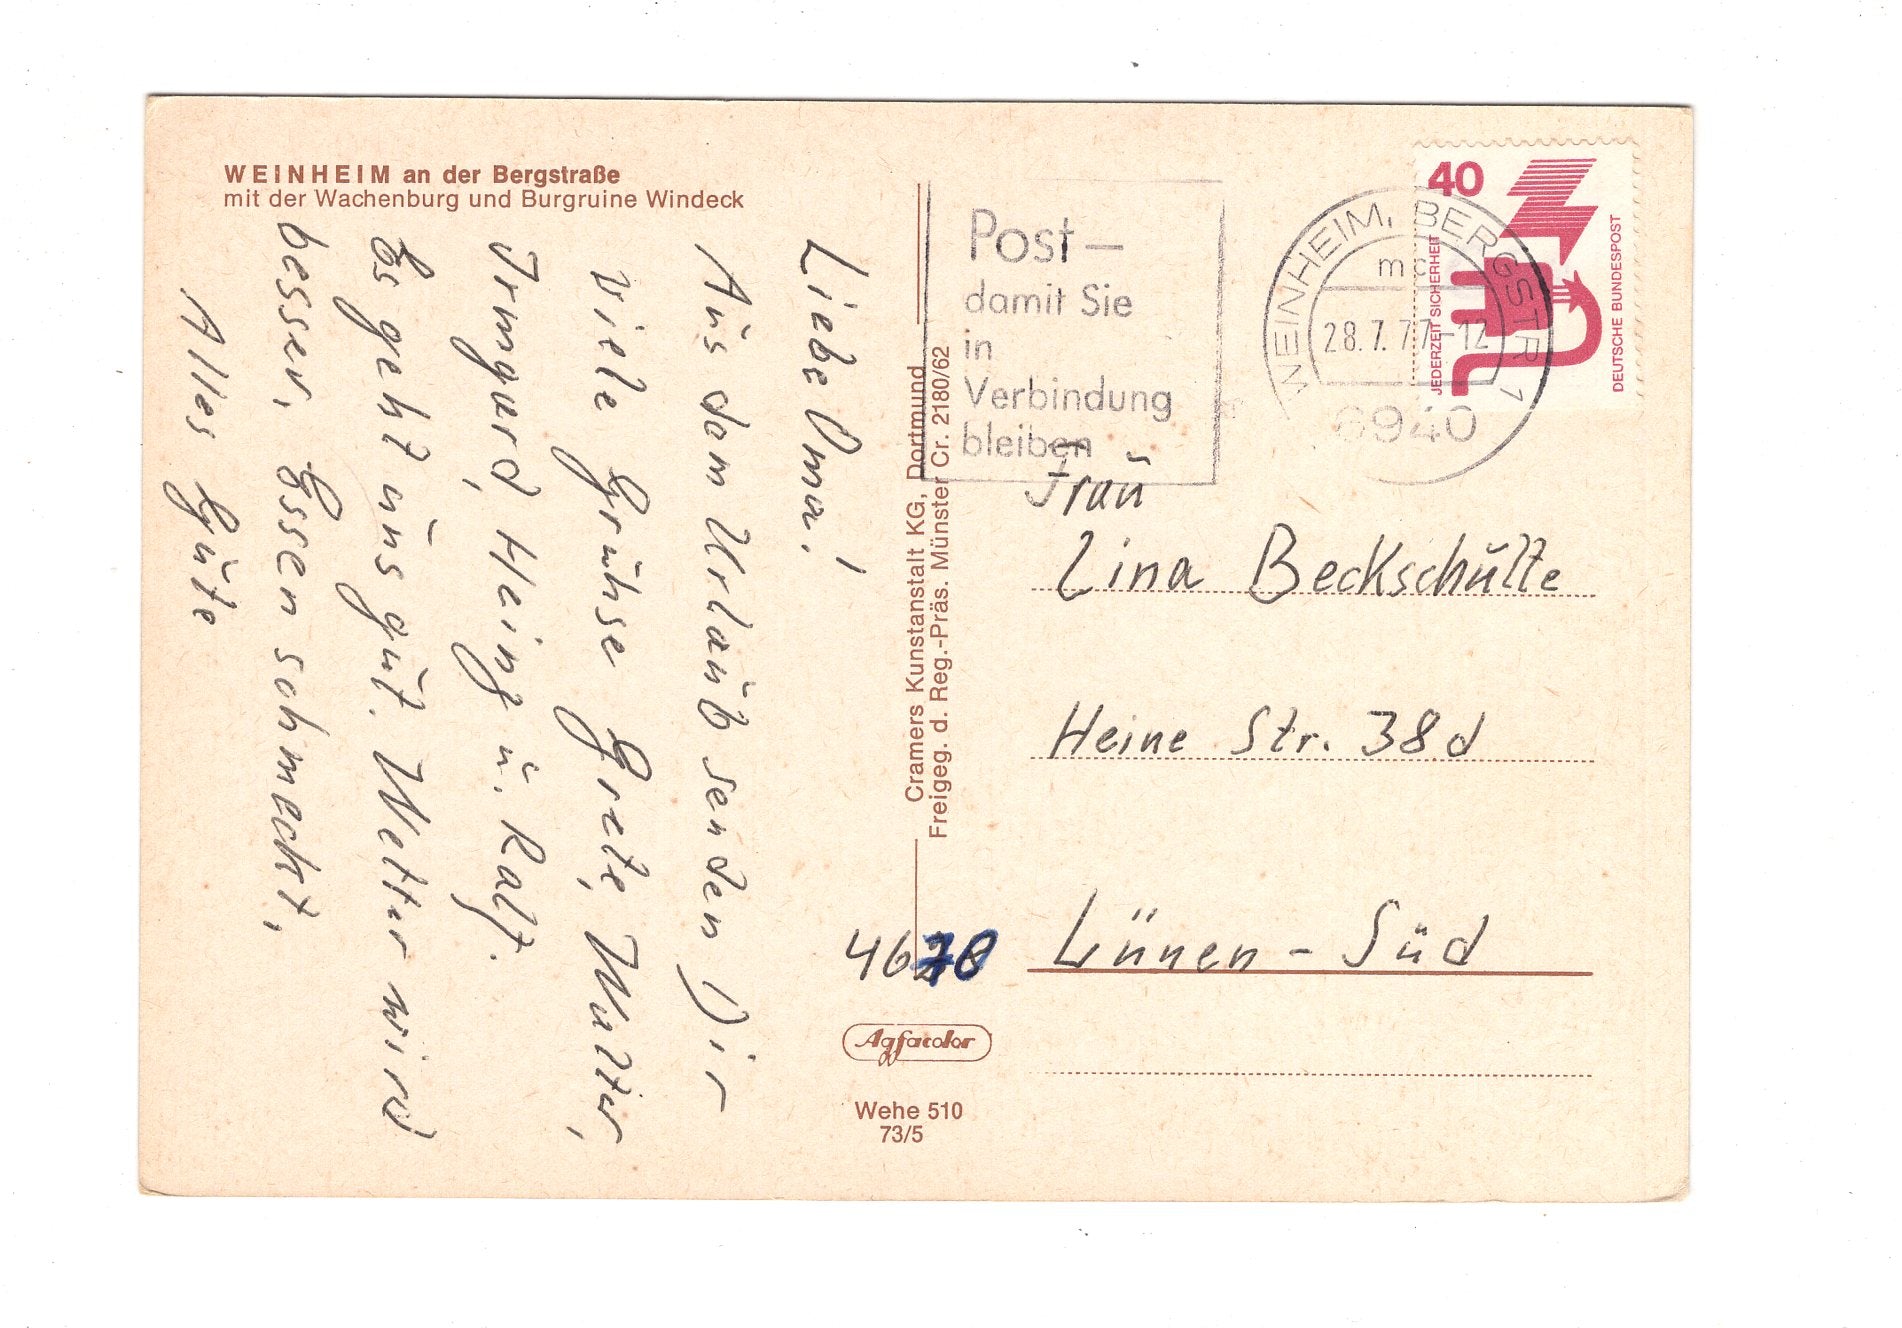 WEINHEIM an der Bergstraße
mit der Wachenburg und Burgruine Windeck
Liebe Oma!
Aus dem Urlaub senden Dir
viele Grühse Grete, Mutter,
Irmgard, Heinz u. Ralf.
Es geht uns gut. Wetter wird
besser, Essen schmeckt,
Alles Gute
Cramers Kunstanstalt KG, Dortmund
Freigeg. d. Reg.-Präs. Münster Cr. 2180/62
Post –
damit Sie
in
Verbindung
bleiben
WEINHEIM, BERGSTR 1
mc
28.7.77-12
6940
40
JEDERZEIT SICHERHEIT
DEUTSCHE BUNDESPOST
Frau
Lina Beckschulte
Heine Str. 38d
4670 Lünen - Süd
Agfacolor
Wehe 510
73/5